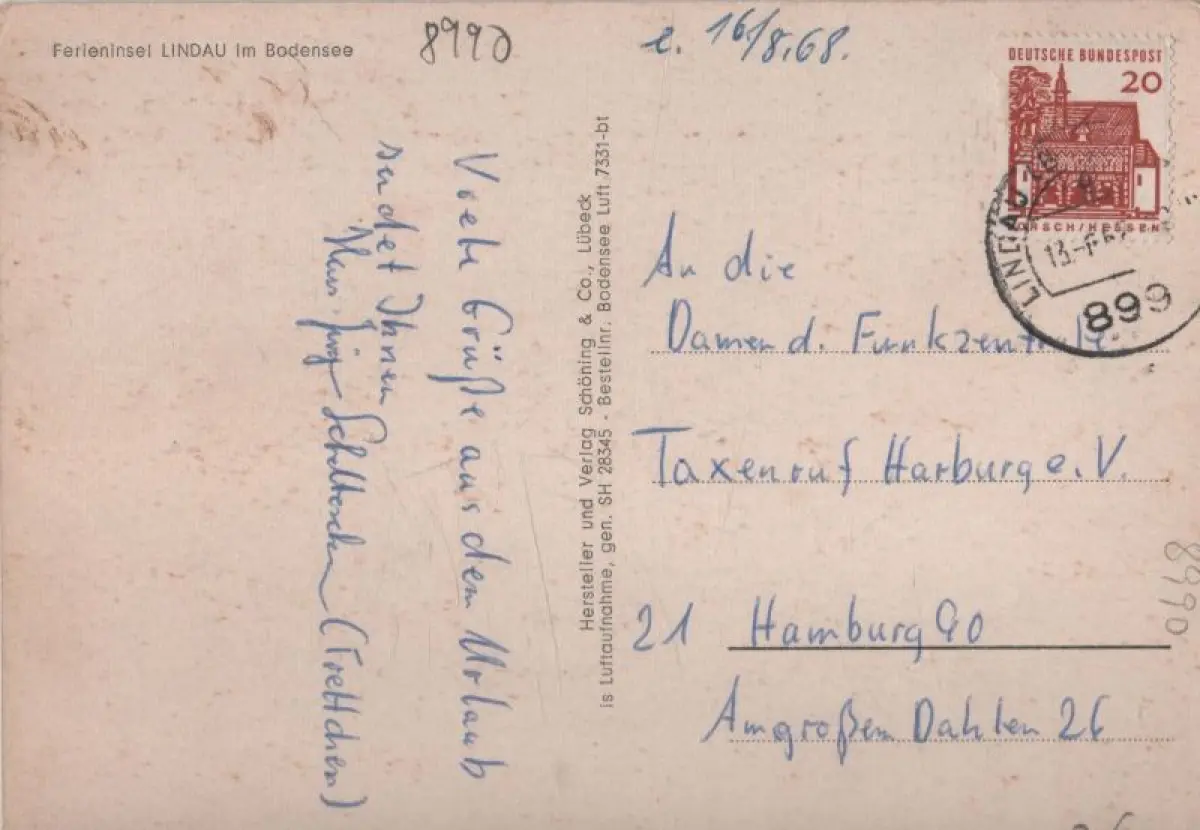 Ferieninsel LINDAU im Bodensee
8990
16/8.68.
DEUTSCHE BUNDESPOST
20
LORSCH/HESSEN
LINDAU
899
Viele Grüße aus dem Urlaub
sendet Ihnen
(Frettchen)
Hersteller und Verlag Schöning & Co., Lübeck
is Luftaufnahme, gen. SH 28345 · Bestellnr. Bodensee Luft 7331-bt
An die
Damen d. Funkzentrale
Taxenruf Harburg e. V.
21 Hamburg 90
Am großen Dahlen 26
8990